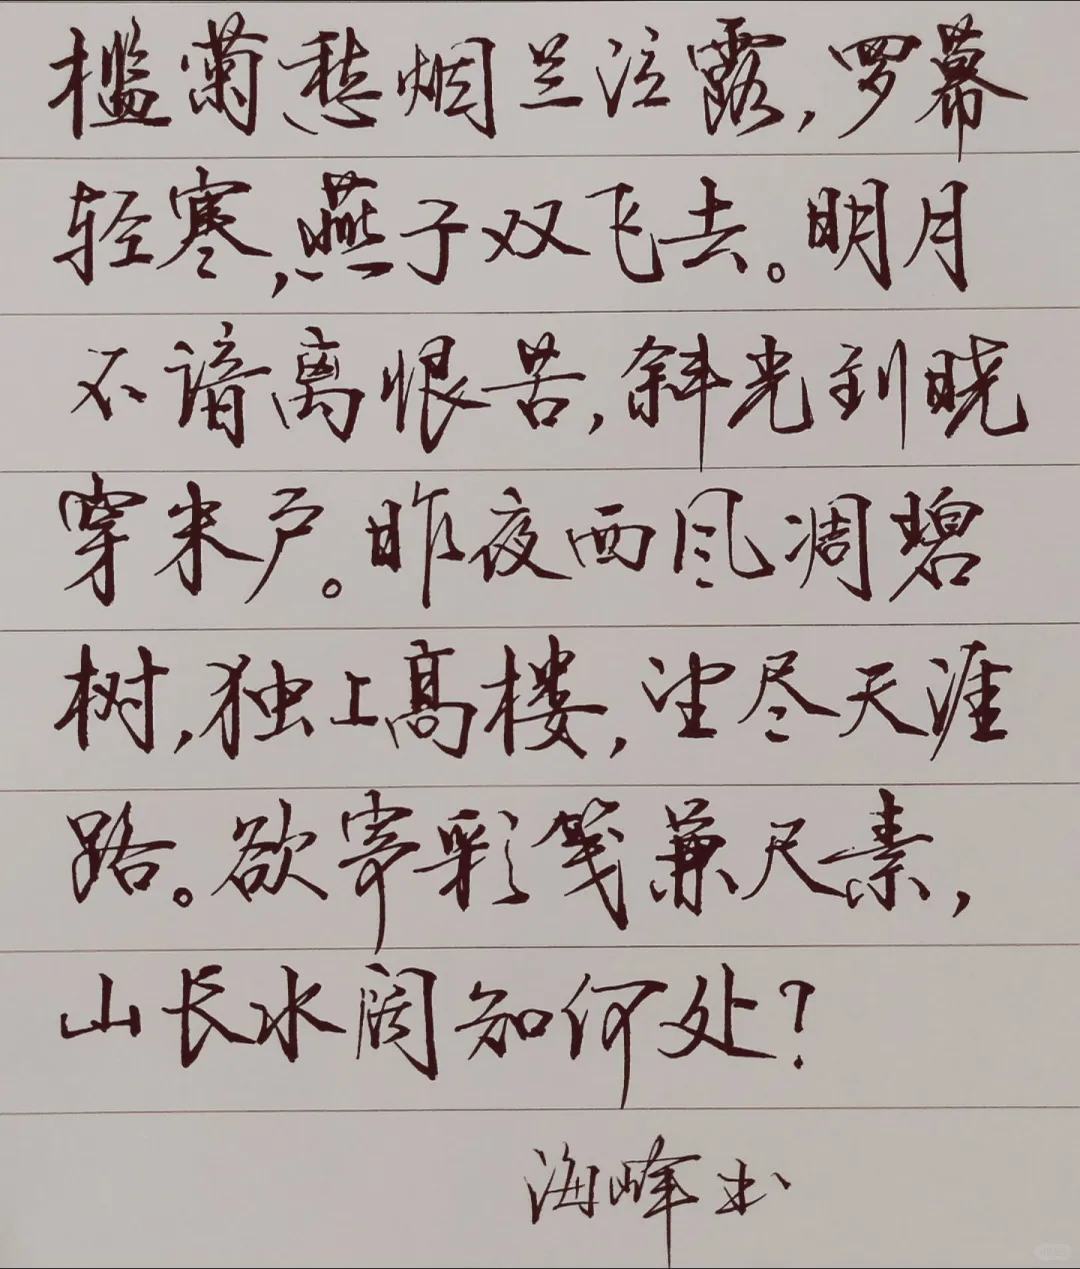 槛菊愁烟兰泣露,罗幕
轻寒,燕子双飞去。明月
不谙离恨苦,斜光到晓
穿朱户。昨夜西风凋碧
树,独上高楼,望尽天涯
路。欲寄彩笺兼尺素,
山长水阔知何处?
海峰书